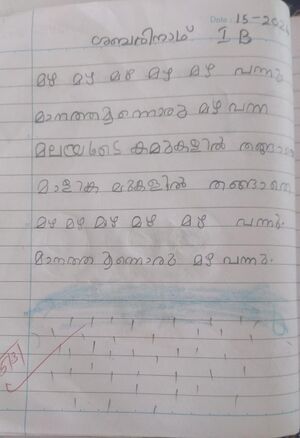 Date: 15-202
ശബരിനാഥ് I B
മഴ മഴ മഴ മഴ മഴ വന്നു
മാനത്തുന്നൊരു മഴ വന്ന
മലയുടെ മുകളിൽ തങ്ങാതെ
മാളിക മുകളിൽ തങ്ങാതെ
മഴ മഴ മഴ മഴ മഴ വന്നു.
മാനത്തുന്നൊരു മഴ വന്നു.